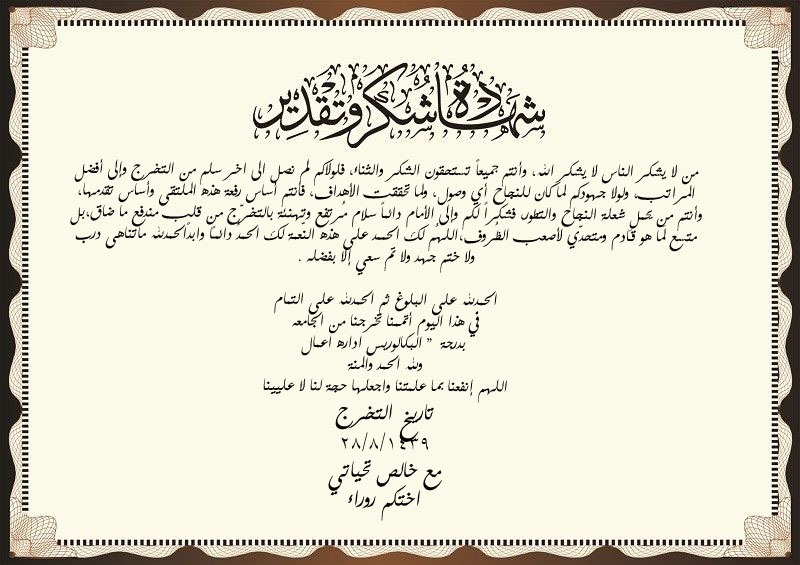 شهادة شكر وتقدير
من لا يشكر الناس لا يشكر الله، وأنتم جميعاً تستحقون الشكر والثناء، فلولاكم لم نصل الى اخر سلم من التخرج وإلى أفضل
المراتب، ولولا جهودكم لما كان للنجاح أي وصول، ولما تحققت الأهداف، فأنتم أساس رفعة هذه الملتقى وأساس تقدمها،
وأنتم من يحمل شعلة النجاح والتطور فشكراً لكم وإلى الأمام دائماً سلام مرتفع وتهنئة بالتخرّج من قلب مندفع ما ضاق،بل
متسع لما هو قادم ومتحدي لأصعب الظروف،اللهم لك الحمد على هذه النعمة لك الحمد دائماً وابداًالحمدلله ماتناهى درب
ولا ختم جهد ولا تم سعي إلا بفضله .
الحمدلله على البلوغ ثم الحمدلله على التمام
في هذا اليوم أتممنا تخرجنا من الجامعه
بدرجة " البكالوريس اداره اعمال
ولله الحمد والمنة
اللهم إنفعنا بما علمتنا واجعلها حجة لنا لا عليينا
تاريخ التخرج
٢٨/٨/١٤٣٩
مع خالص تحياتي
اختكم روراء